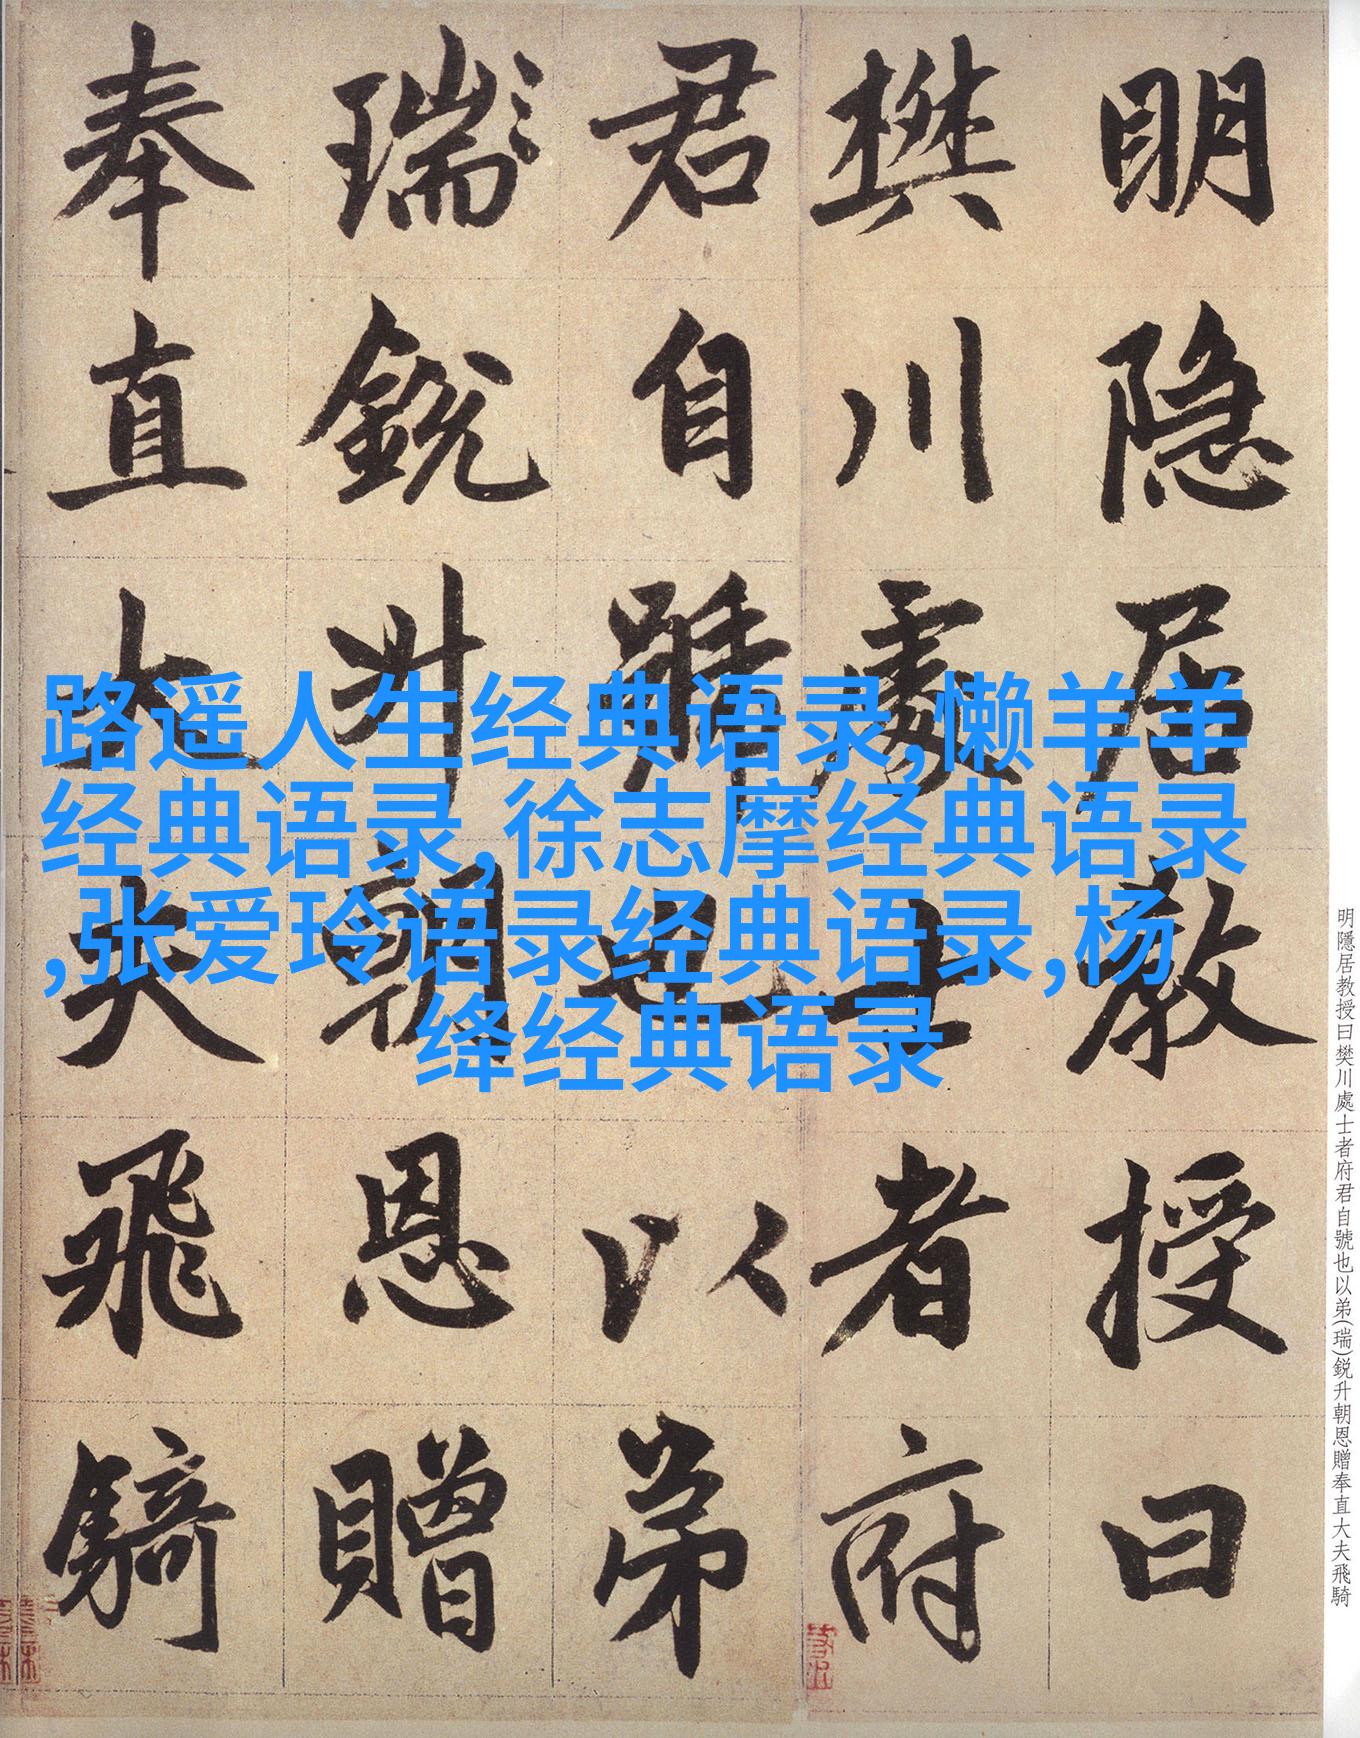 明隐居教授曰
樊川處士者府
君自號也以弟
瑞鋭升朝恩贈
奉直大夫飛騎
路遥人生经典语录,懒羊羊
经典语录,徐志摩经典语录
,张爱玲语录经典语录,杨
绛经典语录
明隱居教授曰樊川處士者府君自號也以弟(瑞)鋭升朝恩贈奉直大夫飛騎